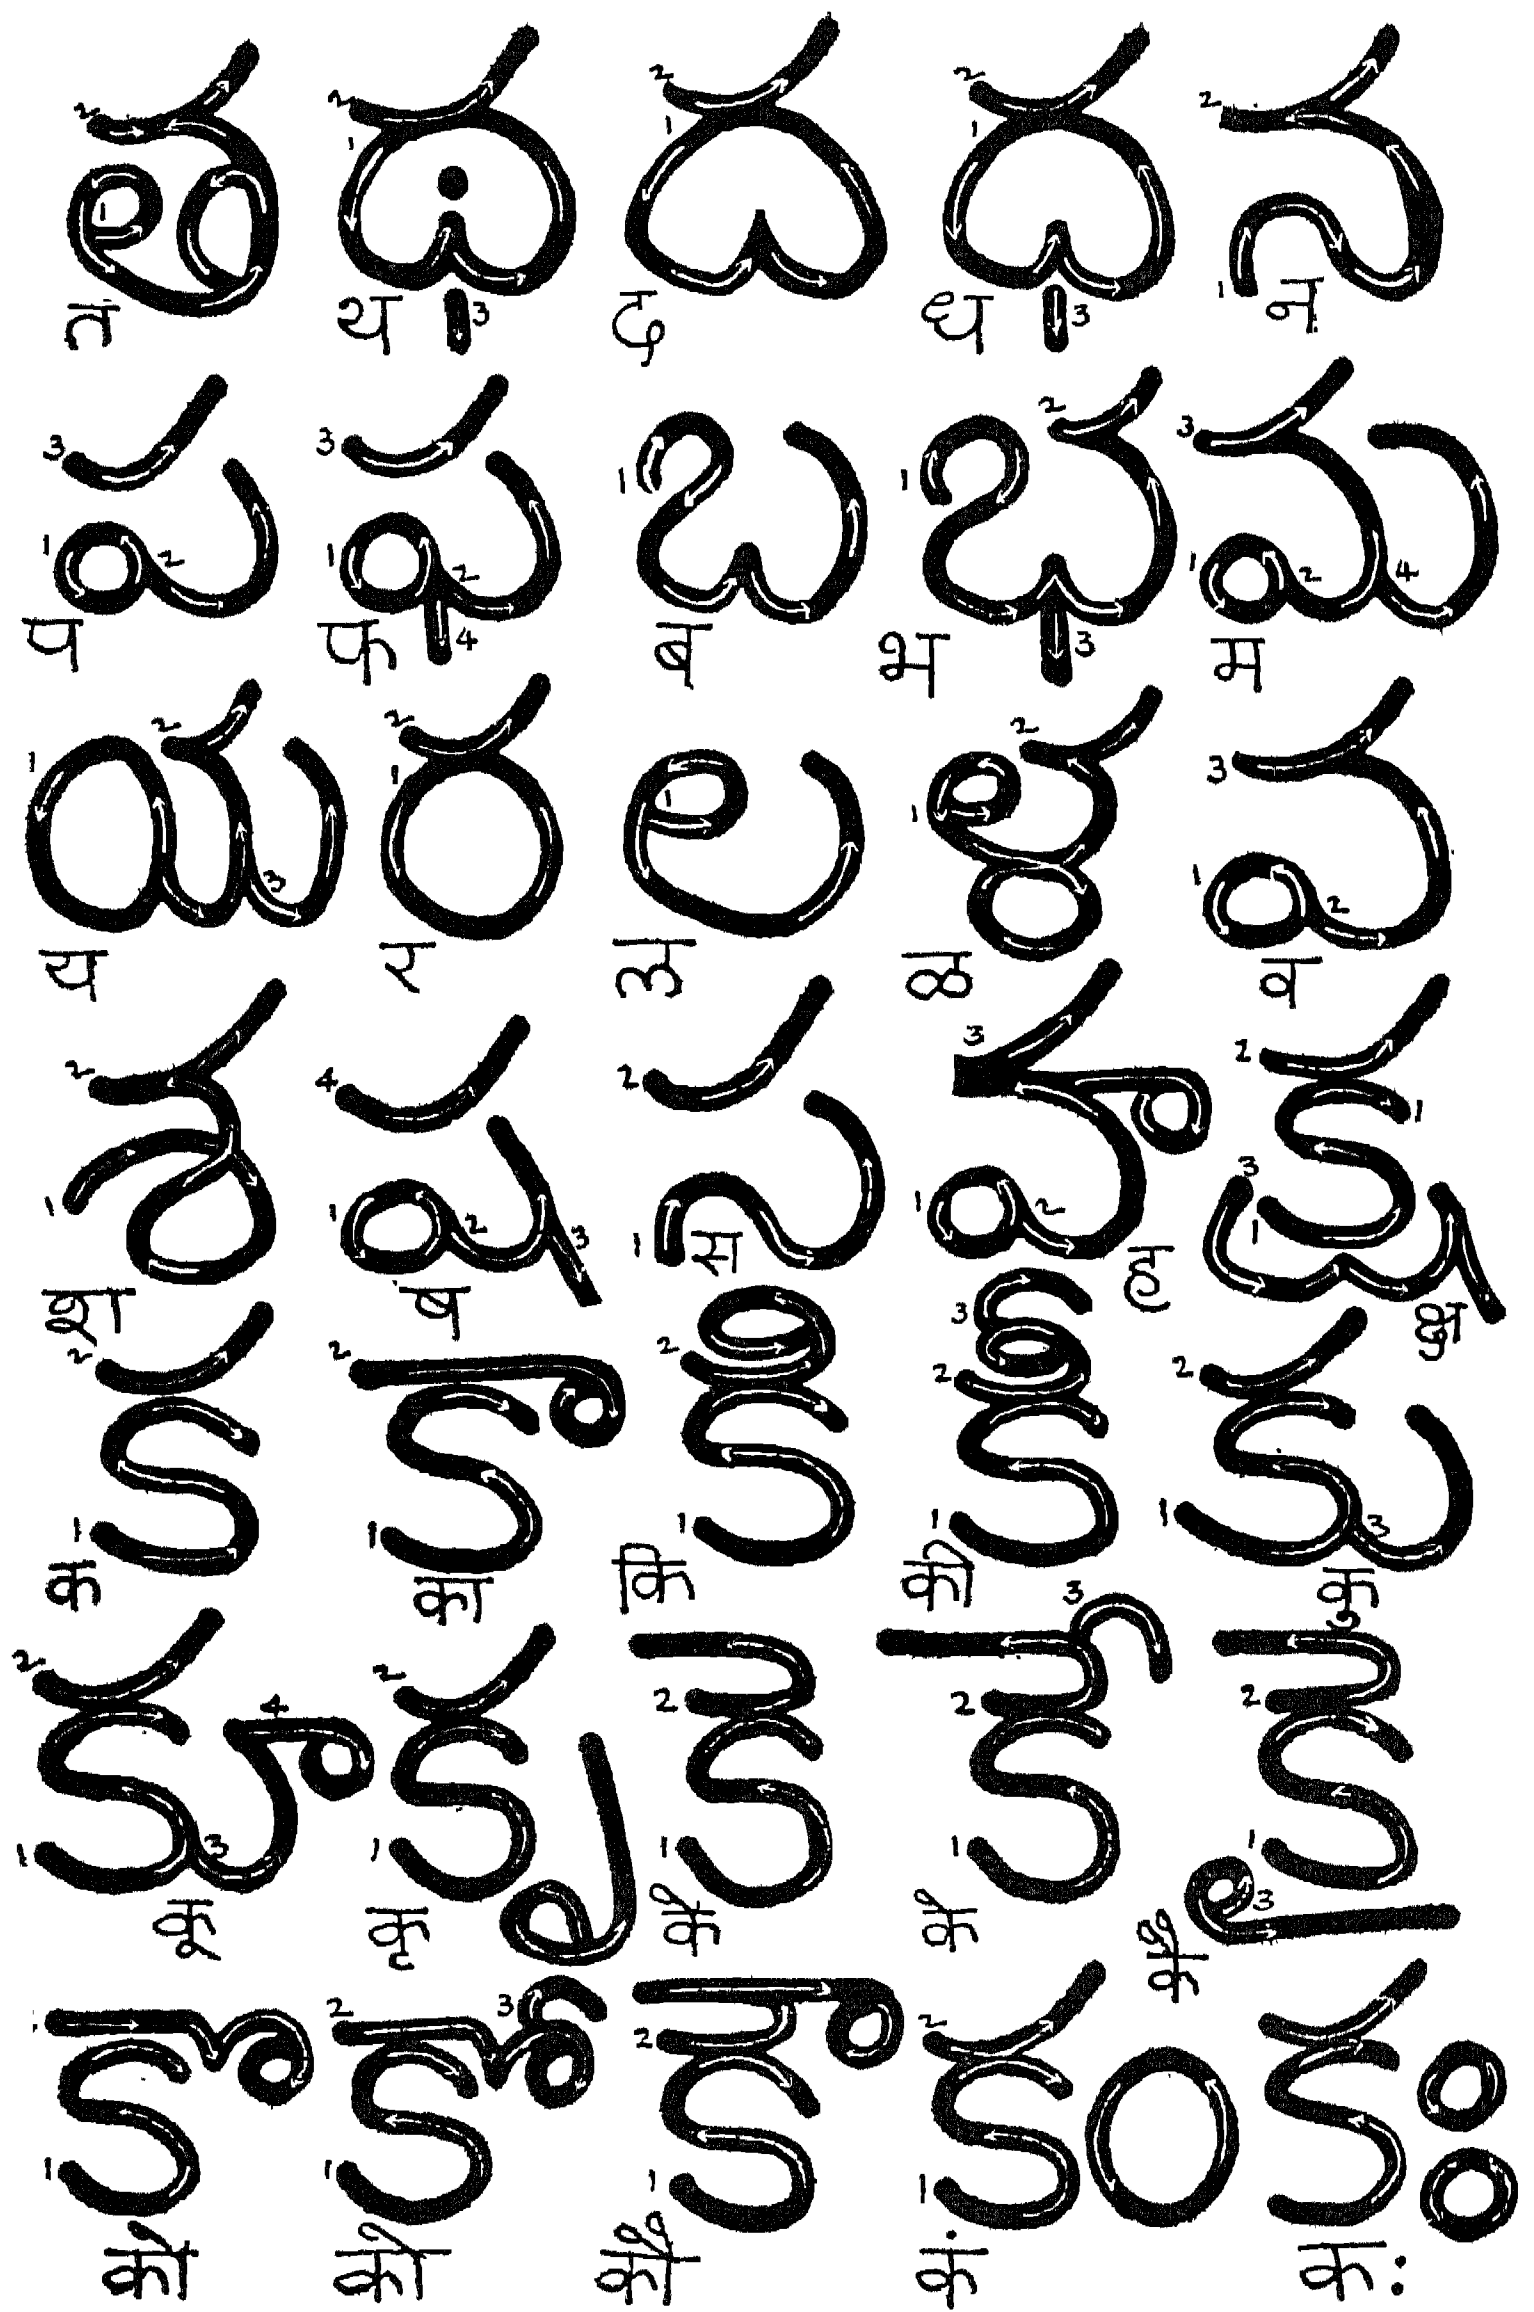 త థ ద ధ న
त थ द ध न
ప ఫ బ భ మ
प फ ब भ म
య ర ల ళ వ
य र ल ळ व
శ ష స హ క్ష
श ष स ह क्ष
క కా కి కీ కు
क का कि की कु
కూ కృ కె కే కై
कू कृ कॆ के कै
కొ కో కౌ కం కః
कॊ को कौ कं कः